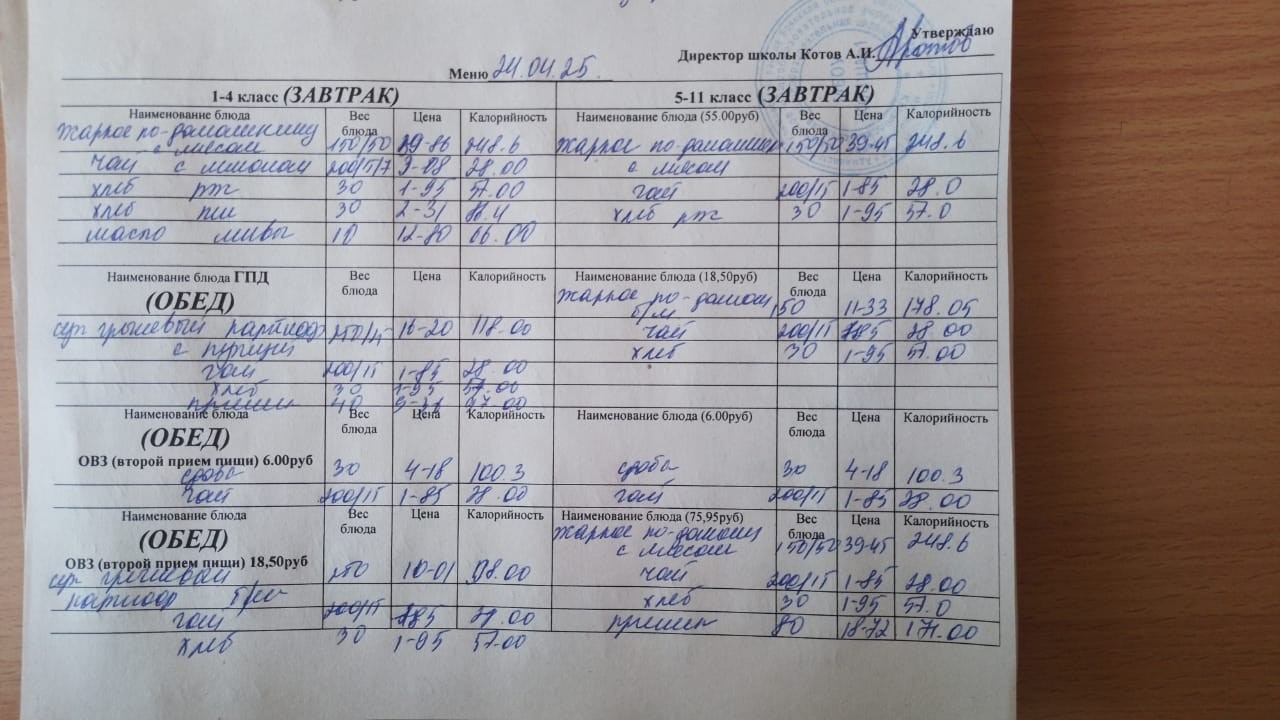 Утверждаю
Директор школы Котов А.И.
Меню 24.04.25.
1-4 класс (ЗАВТРАК) 5-11 класс (ЗАВТРАК)
Наименование блюда Вес блюда Цена Калорийность Наименование блюда (55.00руб) Вес блюда Цена Калорийность
жаркое по-домашнему с мясом 150/50 39-86 248.6 жаркое по-домашнему с мясом 150/50 39-45 248.6
чай с лимоном 200/15/7 3-08 28.00 чай 200/15 1-85 28.0
хлеб рж 30 1-95 57.00 хлеб рж 30 1-95 57.0
хлеб пш 30 2-31
масло сливоч 10 12-80 66.00
Наименование блюда ГПД Вес блюда Цена Калорийность Наименование блюда (18,50руб) Вес блюда Цена Калорийность
(ОБЕД) жаркое по-домашн б/м 150 11-33 178.05
суп грохевый картноф с курицей 250/15 16-20 118.00 чай 200/15 1-85 28.00
чай 200/15 1-85 28.00 хлеб 30 1-95 57.00
хлеб 30 1-95 57.00
пряник 40
Наименование блюда Вес блюда Цена Калорийность Наименование блюда (6.00руб) Вес блюда Цена Калорийность
(ОБЕД)
ОВЗ (второй прием пищи) 6.00руб
сдоба 30 4-18 100.3 сдоба 30 4-18 100.3
чай 200/15 1-85 28.00 чай 200/15 1-85 28.00
Наименование блюда Вес блюда Цена Калорийность Наименование блюда (75,95руб) Вес блюда Цена Калорийность
(ОБЕД) жаркое по-домашн с мясом 150/50 39-45 248.6
ОВЗ (второй прием пищи) 18,50руб
суп 250 10-01 98.00 чай 200/15 1-85 28.00
б/м хлеб 30 1-95 57.0
чай 200/15 1-85 28.00 пряник 80 18-72 171.00
хлеб 30 1-95 57.00